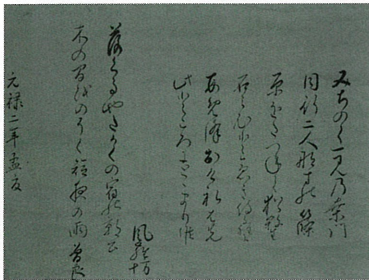 みちのく一見の桑門
同行二人那すの篠
原をたつねて猶殺生
石みむと急侍る程に
あめ降り出けれは先
此ところにとゝまり候
風羅坊
落くるやたかくの宿の時鳥
木の間をのそく短夜の雨 曽良
元禄二年孟夏